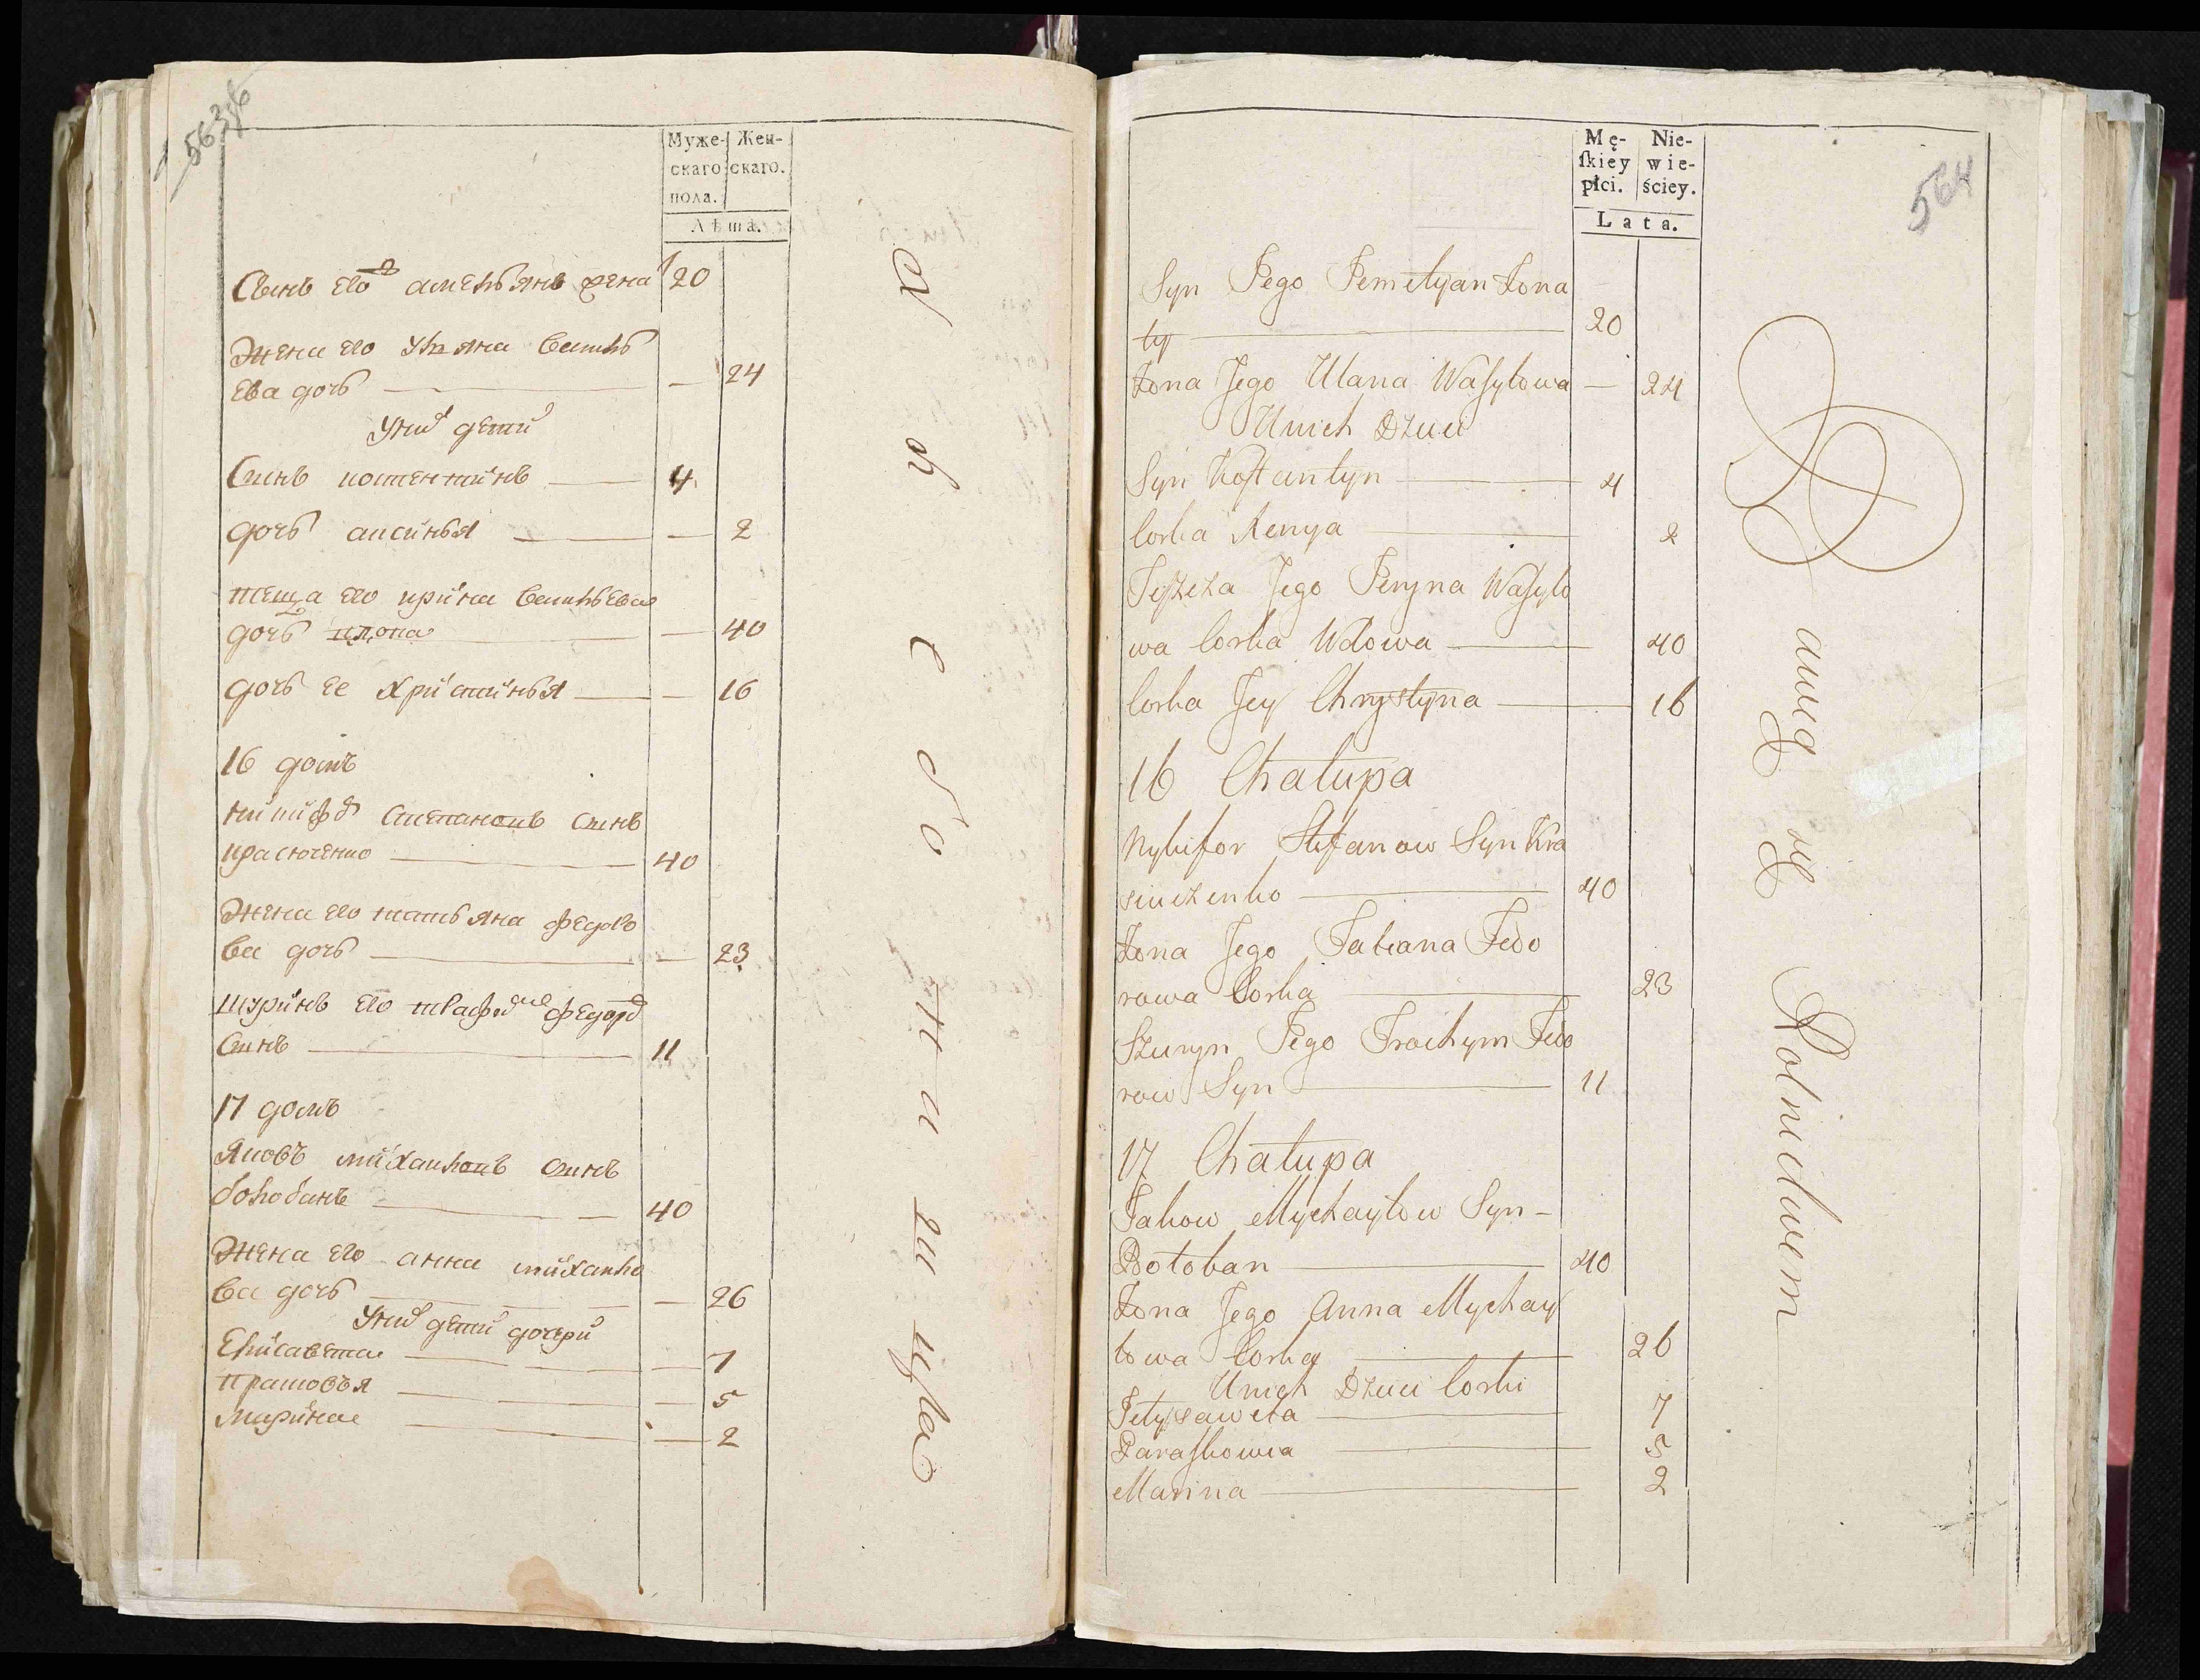 563об
Муже-
скаго
пола.
Жен-
скаго.
Лѣта.
Сынъ его омельянъ жена
20
Жена его уляна Василь
ева дочь — 24
У них дети
Сынъ костентинъ — 4
дочь аксинья — 2
теща его ирина васильева
дочь вдова — 40
дочь ее христинья — 16
16 домъ
никифор степановъ сынъ
красюченко — 40
Жена его татьяна федоро
ва дочь — 23
шуринъ его трафим федоров
сынъ — 11
17 домъ
Яковъ михайловъ сынъ
болобанъ — 40
Жена его анна михайло
ва дочь — 26
У них дети дочери
Елисавета — 7
прасковья — 5
марина — 2
564
Mę-
ſkiey
płci.
Nie-
wie-
ściey.
Lata.
Syn Jego Jemelyan Żona
ty — 20
Żona Jego Ulana Wasylowa — 24
U nich Dzieci
Syn Kostantyn — 4
Corka Xenya — 2
Teszcza Jego Jeryna Wasylo
wa Corka Wdowa — 40
Corka Jey Chrystyna — 16
16 Chałupa
Nykifor Stefanow Syn Kra
siuczenko — 40
Żona Jego Tatiana Fedo
rowa Corka — 23
Szuryn Jego Trochym Fedo
row Syn — 11
17 Chałupa
Jakow Mychayłow Syn -
Bołoban — 40
Żona Jego Anna Mychay
łowa Corka — 26
U nich Dzieci Corki
Jelysaweta — 7
Paraskowia — 5
Marina — 2